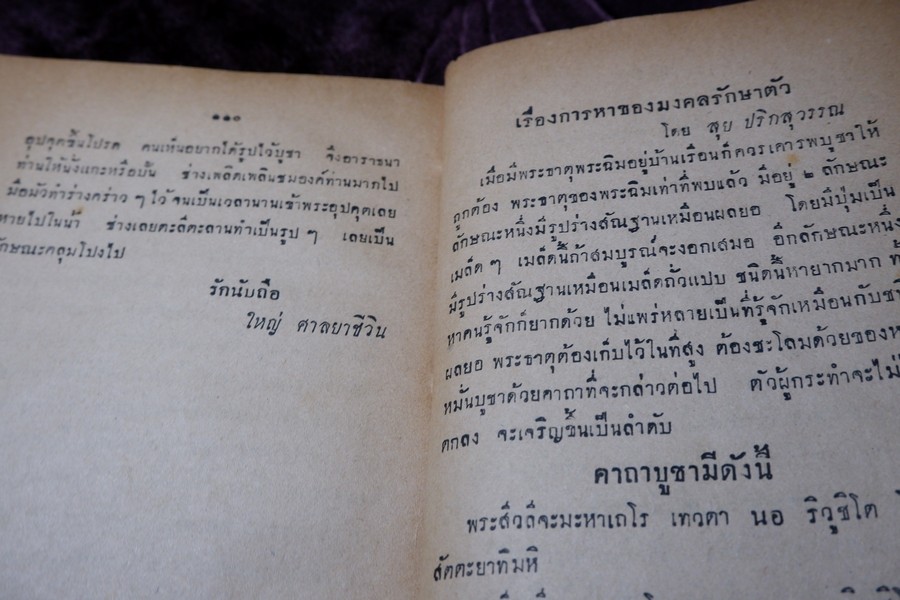 ๑๑๐
อุปคุตขึ้นโปรด คนเห็นอยากได้รูปไว้บูชา จึงอาราธนา
ท่านให้นั่งแกะหรือปั้น ช่างเพลิดเพลินชมองค์ท่านมากไป
มือมัวทำร่างคร่าว ๆ ไว้ จนเป็นเวลานานเข้าพระอุปคุตเลย
หายไปในน้ำ ช่างเลยตะลีตะลานทำเป็นรูป ๆ เลยเป็น
ลักษณะคลุมโปงไป
รักนับถือ
ใหญ่ ศาลยาชีวิน
เรื่องการหาของมงคลรักษาตัว
โดย สุย ปริกสุวรรณ
เมื่อมีพระธาตุพระฉิมอยู่บ้านเรือนก็ควรเคารพบูชาให้
ถูกต้อง พระธาตุของพระฉิมเท่าที่พบแล้ว มีอยู่ ๒ ลักษณะ
ลักษณะหนึ่งมีรูปร่างสัณฐานเหมือนผลยอ โดยมีปุ่มเป็น
เมล็ด ๆ เมล็ดนี้ถ้าสมบูรณ์จะงอกเสมอ อีกลักษณะหนึ่ง
มีรูปร่างสัณฐานเหมือนเมล็ดถั่วแปบ ชนิดนี้หายากมาก
หาคนรู้จักก็ยากด้วย ไม่แพร่หลายเป็นที่รู้จักเหมือนกับ
ผลยอ พระธาตุต้องเก็บไว้ในที่สูง ต้องชะโลมด้วยของ
หมั่นบูชาด้วยคาถาที่จะกล่าวต่อไป ตัวผู้กระทำจะไม่
ตกลง จะเจริญขึ้นเป็นลำดับ
คาถาบูชามีดังนี้
พระสีวลีจะมะหาเถโร เทวตา นอ ริวุชิโต
สัตตะยาทิมหิ